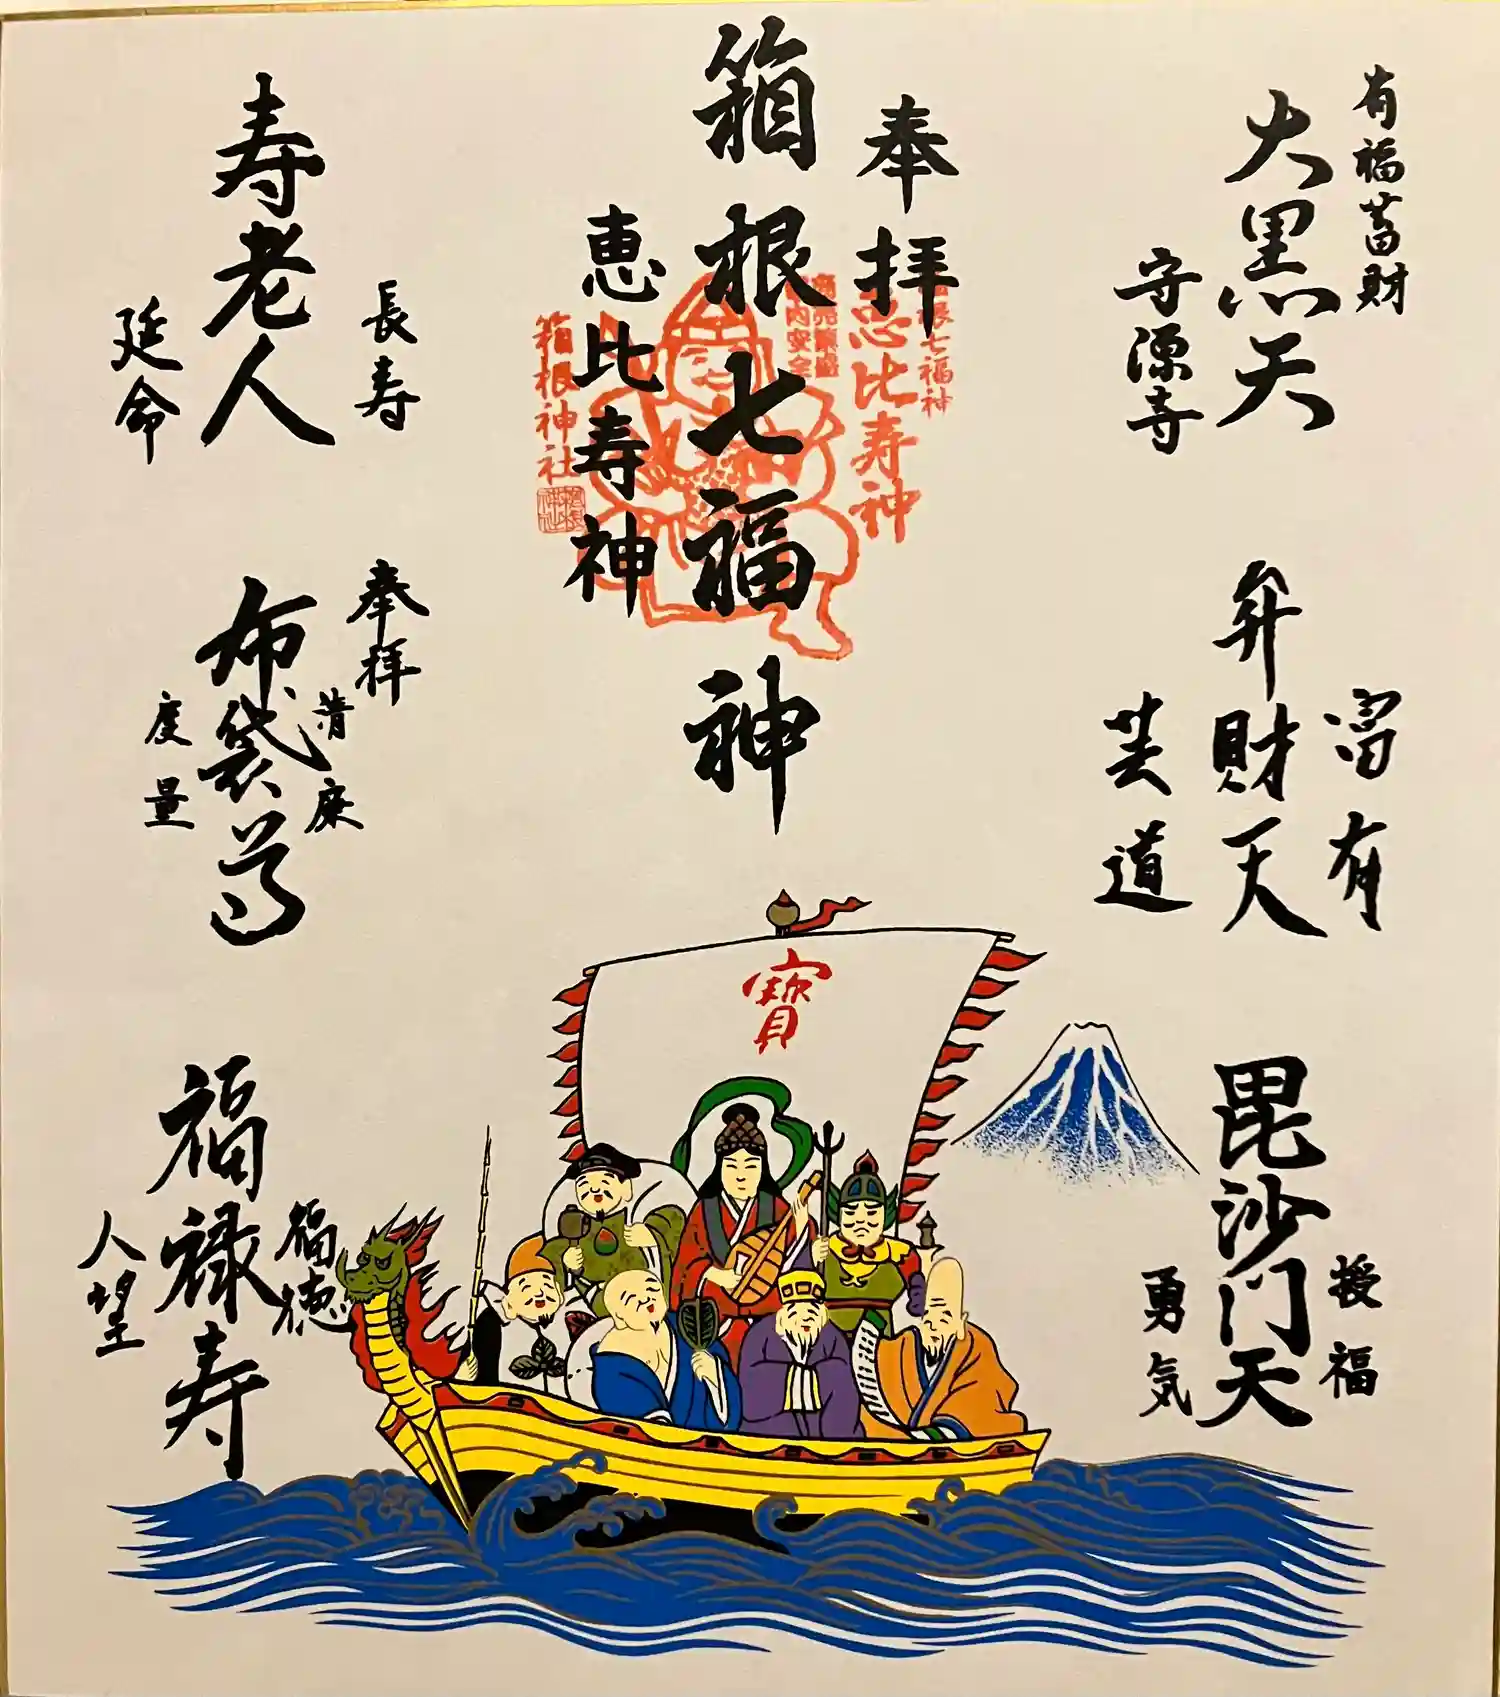 有福蓄財
大黒天
守源寺
富有
弁財天
芸道
授福
毘沙門天
勇気
奉拝
箱根七福神
恵比寿神
箱根七福神
恵比寿神
箱根神社
寶
長寿
寿老人
延命
奉拝
清廉
布袋尊
度量
福徳
福禄寿
人望